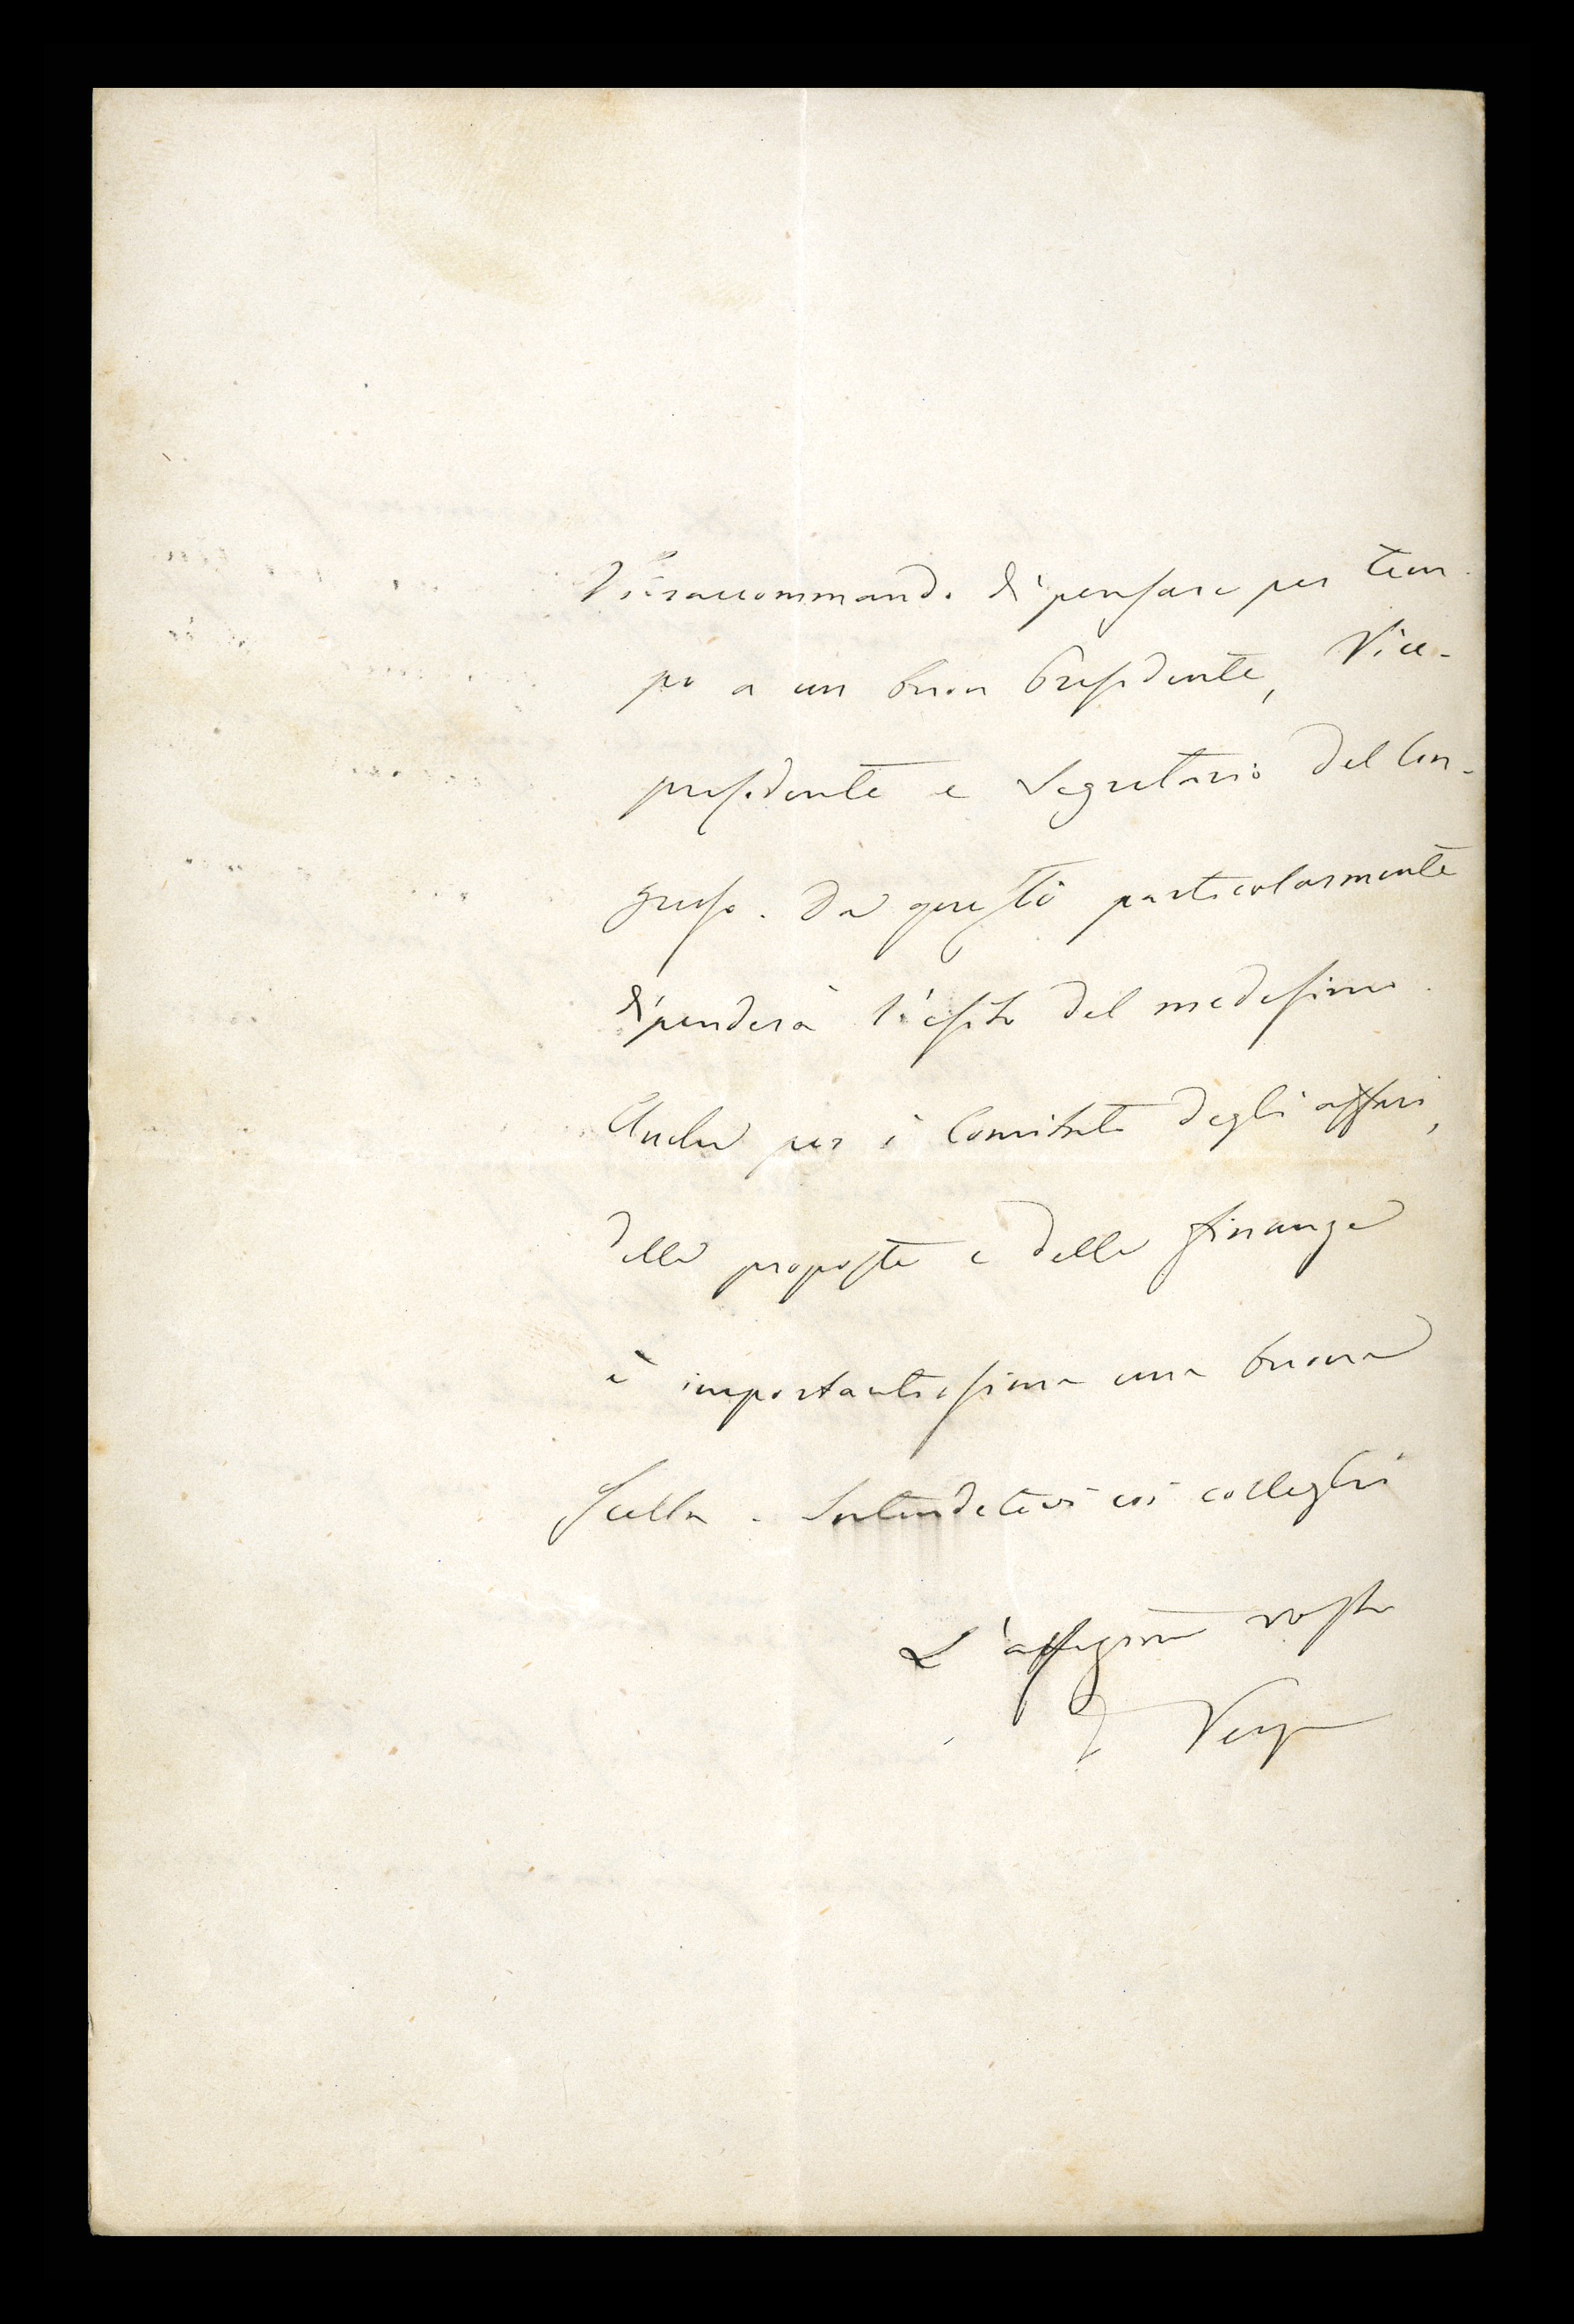 Vi raccommando di pensare per tem-
po a un buon Presidente, Vice-
presidente e Segretario del Con-
gresso. Da questi particolarmente
dipenderà l'esito del medesimo.
Anche per i Comitati degli affari,
delle proposte e delle finanze
è importantissima una buona
Scelta. Intendetevi coi colleghi
L' vostro